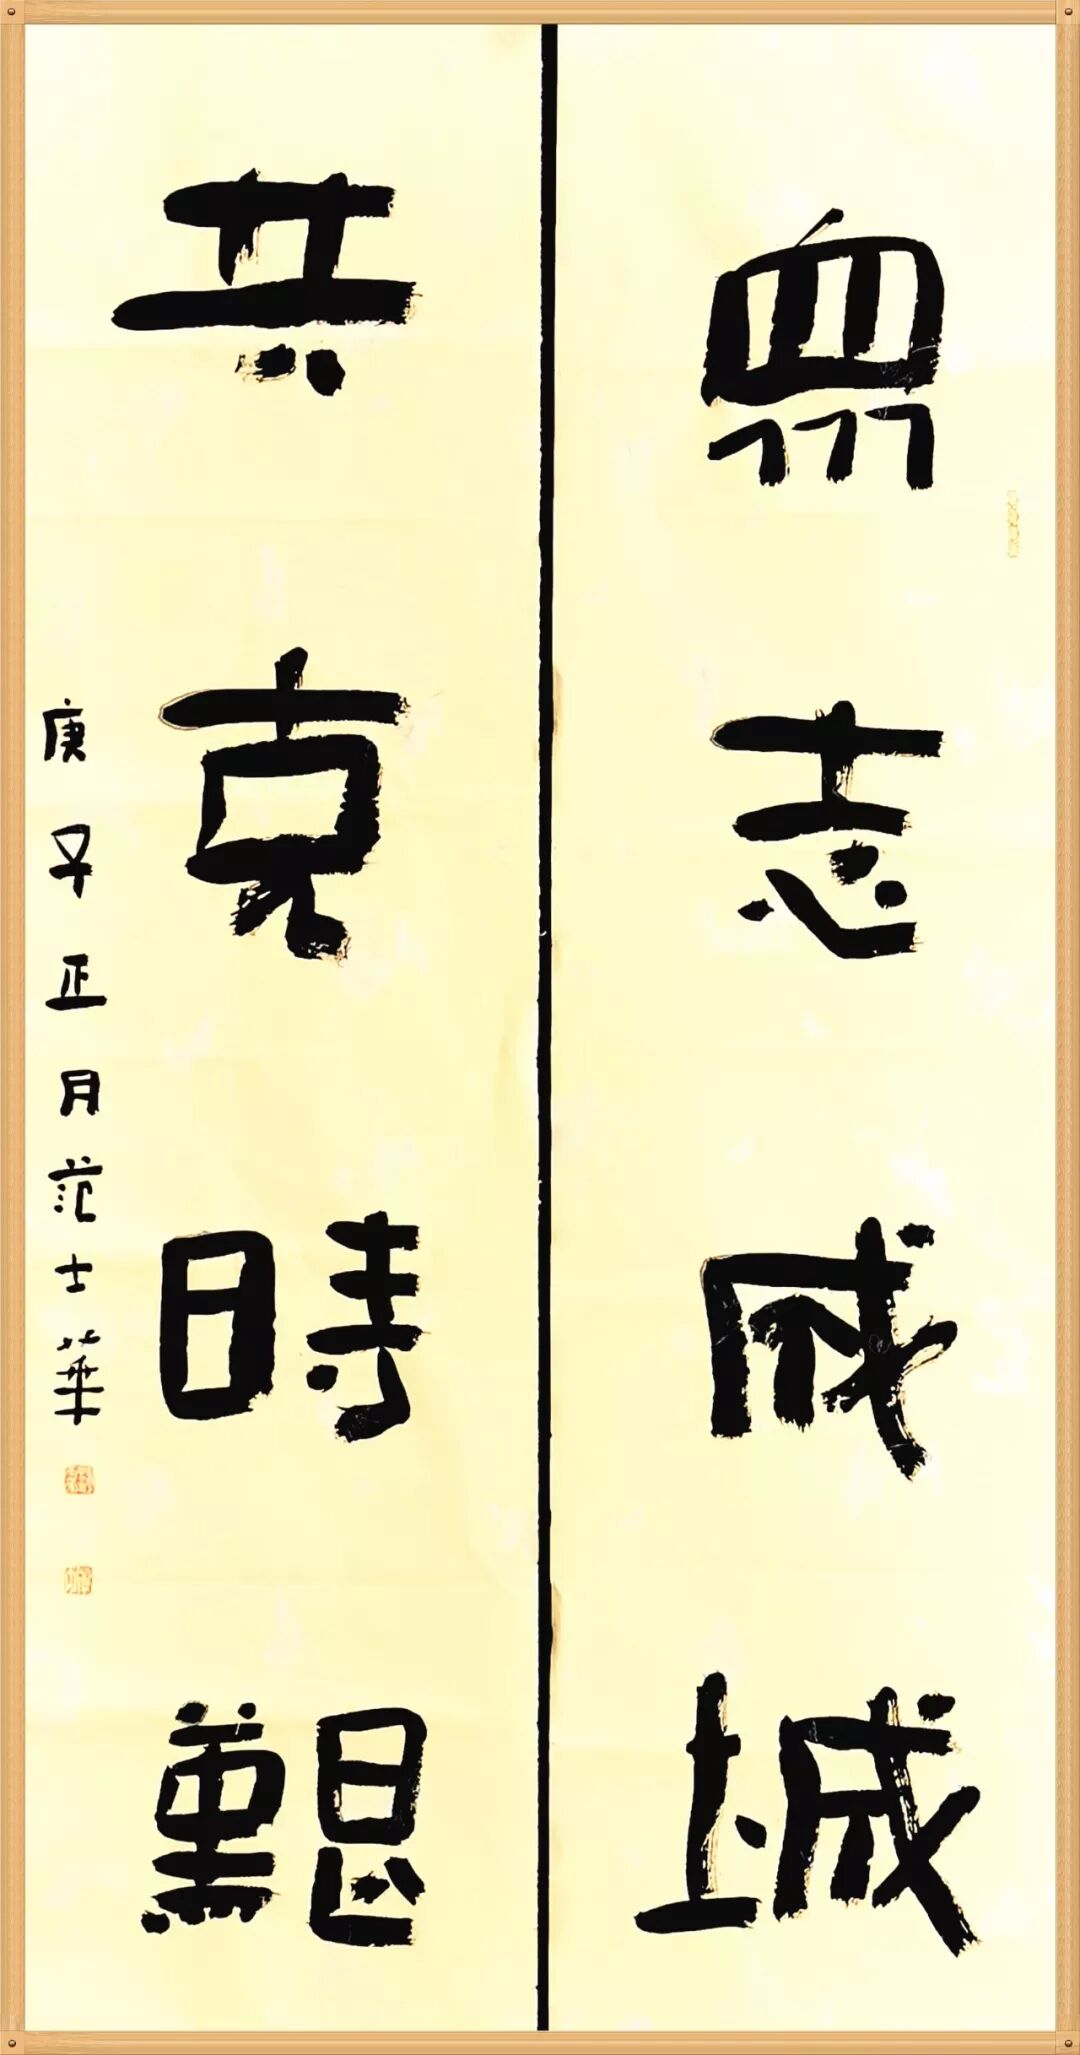 眾志成城
共克時艱
庚子正月范士華